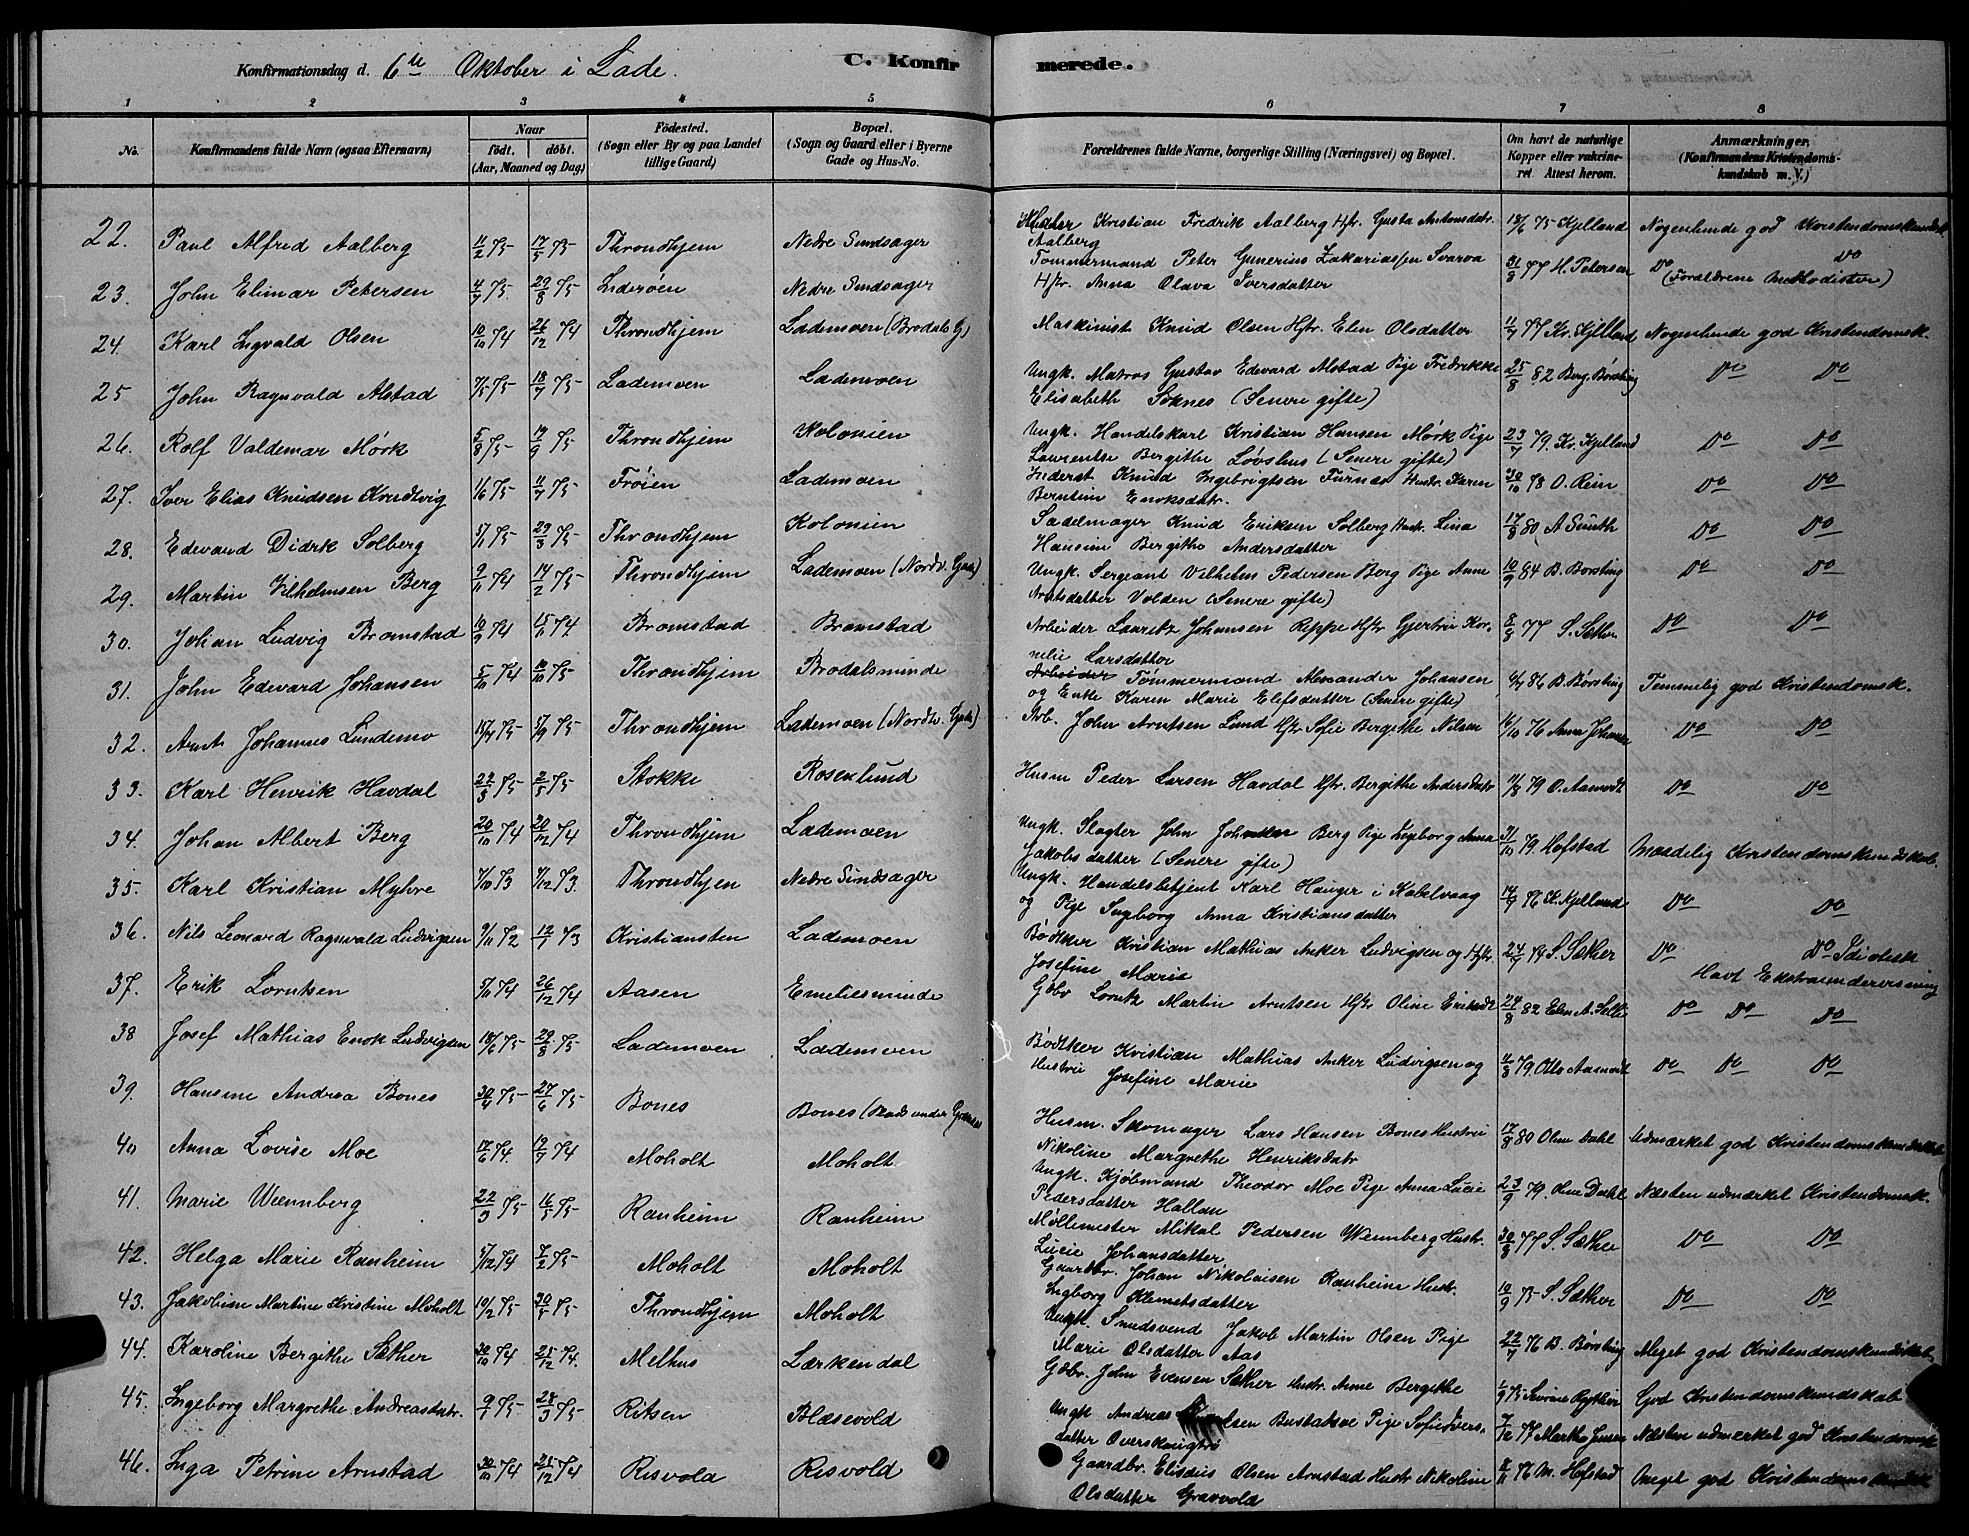 Konfirmationsdag d. 6te Oktober i Lade.
C. Konfirmerede.
1 2 3 4 5 6 7 8
No.
Konfirmandens fulde Navn (ogsaa Efternavn)
Naar
födt. döbt.
(Aar, Maaned og Dag)
Födested.
(Sogn eller By og paa Landet
tillige Gaard)
Bopæl.
(Sogn og Gaard eller i Byerne
Gade og Hus-No.
Forældrenes fulde Navne, borgerlige Stilling (Næringsvei) og Bopæl.
Om havt de naturlige
Kopper eller vakcine-
ret Attest herom.
Anmærkninger.
(Konfirmandens Kristendoms-
kundskab m. V.)
22. Paul Alfred Aalberg 11/2 75 17/5 75 Throndhjem Nedre Sindsager Kristian Fredrik Aalberg Hr. Gusta Antonsdatr. Aalberg 18/6 75 Kjelland Nogenlunde god Kristendomskundsk
23. John Elimar Petersen 4/7 75 29/8 75 Inderøen Nedre Sindsager Tømmermand Peter Gunerius Zakariassen Svarva Htr. Anna Olava Iversdatter 31/8 77 H. Petersen Do Do (Forældrene Methodister)
24. Karl Ingvald Olsen 10/10 74 26/12 74 Throndhjem Lademoen (Brodals G) Maskinist Knud Olsen Htr. Elen Olsdatter 11/7 77 Kr. Kjelland Nogenlunde god Kristendomsk.
25 John Ragnvald Alstad 7/5 75 18/7 75 Lademoen Lademoen Ungk. Matros Gustav Edevard Alstad Pige Fredrikke Elisabeth Soknes (Senere gifte) 25/8 82 Berg. Børsting Do Do
26. Rolf Valdemar Mörk 5/8 75 19/9 75 Throndhjem Kolonien Ungk. Handelskarl Kristian Hansen Mørk Pige Laurentse Bergithe Løvshus (Senere gifte) 23/7 79. Kr. Kjelland Do Do
27. Iver Elias Knudsen Knudtvig 1/6 75 11/7 75 Frøien Lademoen Inderst Knud Ingebrigtsen Furnes Hustr. Karen Berntine Enoksdatr. 30/10 78 O. Rein Do Do
28. Edevard Didrk Solberg 5/1 75 29/3 75 Throndhjem Kolonien Sadelmager Knud Eriksen Solberg Hustr. Lina Hansine Bergithe Andersdatter 17/8 80 A Smith Do Do
29. Martin Vilhelmsen Berg 9/11 74 14/2 75 Throndhjem Lademoen (Nordv. Gade) Ungk. Sergeant Vilhelm Pedersen Berg Pige Anne Arntsdatter Volden (Senere gifte) 10/9 84 B. Børsting Do Do
30. Johan Ludvig Bromstad 10/9 74 15/11 74 Bromstad Bromstad Arbeider Lauritz Johansen Reppe Htr Gjertru Kornelie Larsdatter 8/8 77 S. Sæther Do Do
31. John Edevard Johansen 5/10 74 10/10 75 Throndhjem Brodalsminde Tømmermand Alexander Johansen og Enke Karen Marie Elefsdatter (Senere gifte) 9/7 86 B. Børsting Temmelig god Kristendomsk.
32. Arnt Johannes Lundemo 10/4 75 5/9 75 Throndhjem Lademoen (Nordv. Gade) Arb. John Arntsen Lund Htr Sofie Bergithe Nilsen 16/10 76 Anna Johansen Do Do
33. Karl Henrik Havdal 23/3 75 2/5 75 Stokke Rosenlund Husm Peder Larsen Havdal Htr. Bergithe Andersdatr 11/8 79 O. Aamodt Do Do
34. Johan Albert Berg 20/10 74 20/12 74 Throndhjem Lademoen Ungk. Slagter John Johnsen Berg Pige Ingeborg Anna Jakobsdatter (Senere gifte) 31/10 79. Hofstad Maadelig Kristendomskundskab.
35. Karl Kristian Myhre 7/10 73 7/12 73. Throndhjem Nedre Sindsager Ungk. Handelsbetjent Karl Hauger i Kabelvaag og Pige Ingborg Anna Kristiansdatter 14/9 76 K. Kjelland Do Do
36. Nils Leonard Ragnvald Ludvigsen 9/11 72 12/1 73 Kristiansten Lademoen Bødtker Kristian Mathias Anker Ludvigsen og Htr. Josefine Marie 24/7 74 S. Sæther Do Do Idiotisk Havt Ekstraundervisning
37. Erik Lorntsen 5/11 74 26/12 74 Aasen Emeliesminde Gdbr Lorntz Martin Arntsen Htr Oline Eriksdt 24/8 82 Elen A. Selli Do Do Do
38 Josef Mathias Enok Ludvigsen 18/6 75 29/8 75 Lademoen Lademoen Bødtker Kristian Mathias Anker Ludvigsen og Hustru Josefine Marie 11/8 79. Otto Aamodt Do Do Do
39. Hansine Andrea Bones 30/4 75 27/6 75 Bones Bones (Plads under ) Husm. Skomager Lars Hansen Bones Hustru Nikoline Margrethe Henriksdatr 17/8 80 Oline Dahl Udmærket god Kristendomskundskab
40 Anna Lovise Moe 17/6 74. 19/7 74 Moholt Moholt Ungk. Kjøbmand Theodor Moe Pige Anna Lucie Pedersdatter Hallan 23/9 79. Oline Dahl Næsten udmærket Kristendomsk.
41. Marie Wennberg 22/3 75 16/5 75 Ranheim Ranheim Møllemester Mikal Pedersen Wennberg Hustr. Lucie Johansdatter 30/8 77 S. Sæther Do Do
42. Helga Marie Ranheim 5/12 74 7/2 75 Moholt Moholt Gaardbr. Johan Nikolaisen Ranheim Hustr. Ingborg Klemetsdatter 10/9 75 S. Sæther Do Do
43. Jakobine Martine Kristine Moholt 10/2 75 30/5 75 Throndhjem Moholt Ungk. Smedsvend Jakob Martin Olsen Pige Marie Olsdatter Aas 22/7 76 B. Børsting Meget god Kristendomskundskab
44. Karoline Bergithe Sæther 30/10 74 25/12 74. Melhus Lærkendal Gdbr. John Evensen Sæther Hustr. Anne Bergithe God Kristendomskundskab
45. Ingeborg Margrethe Andreasdatr. 9/1 75 28/3 75 Ritsen Blæsevold Ungk Andreas Bustaksve Pige Sofie Iversdatter 7/12 77 Martha Jensen Næsten udmærket god Kristendomsk
46. Inga Petrine Arnstad 30/10 74 25/12 74 Risvold Risvold Gaardbr. Elisæus Olsen Arnstad Hustr Nikoline Olsdatter Gravvold 11/11 76 M. Hofstad Meget god Kristendoms